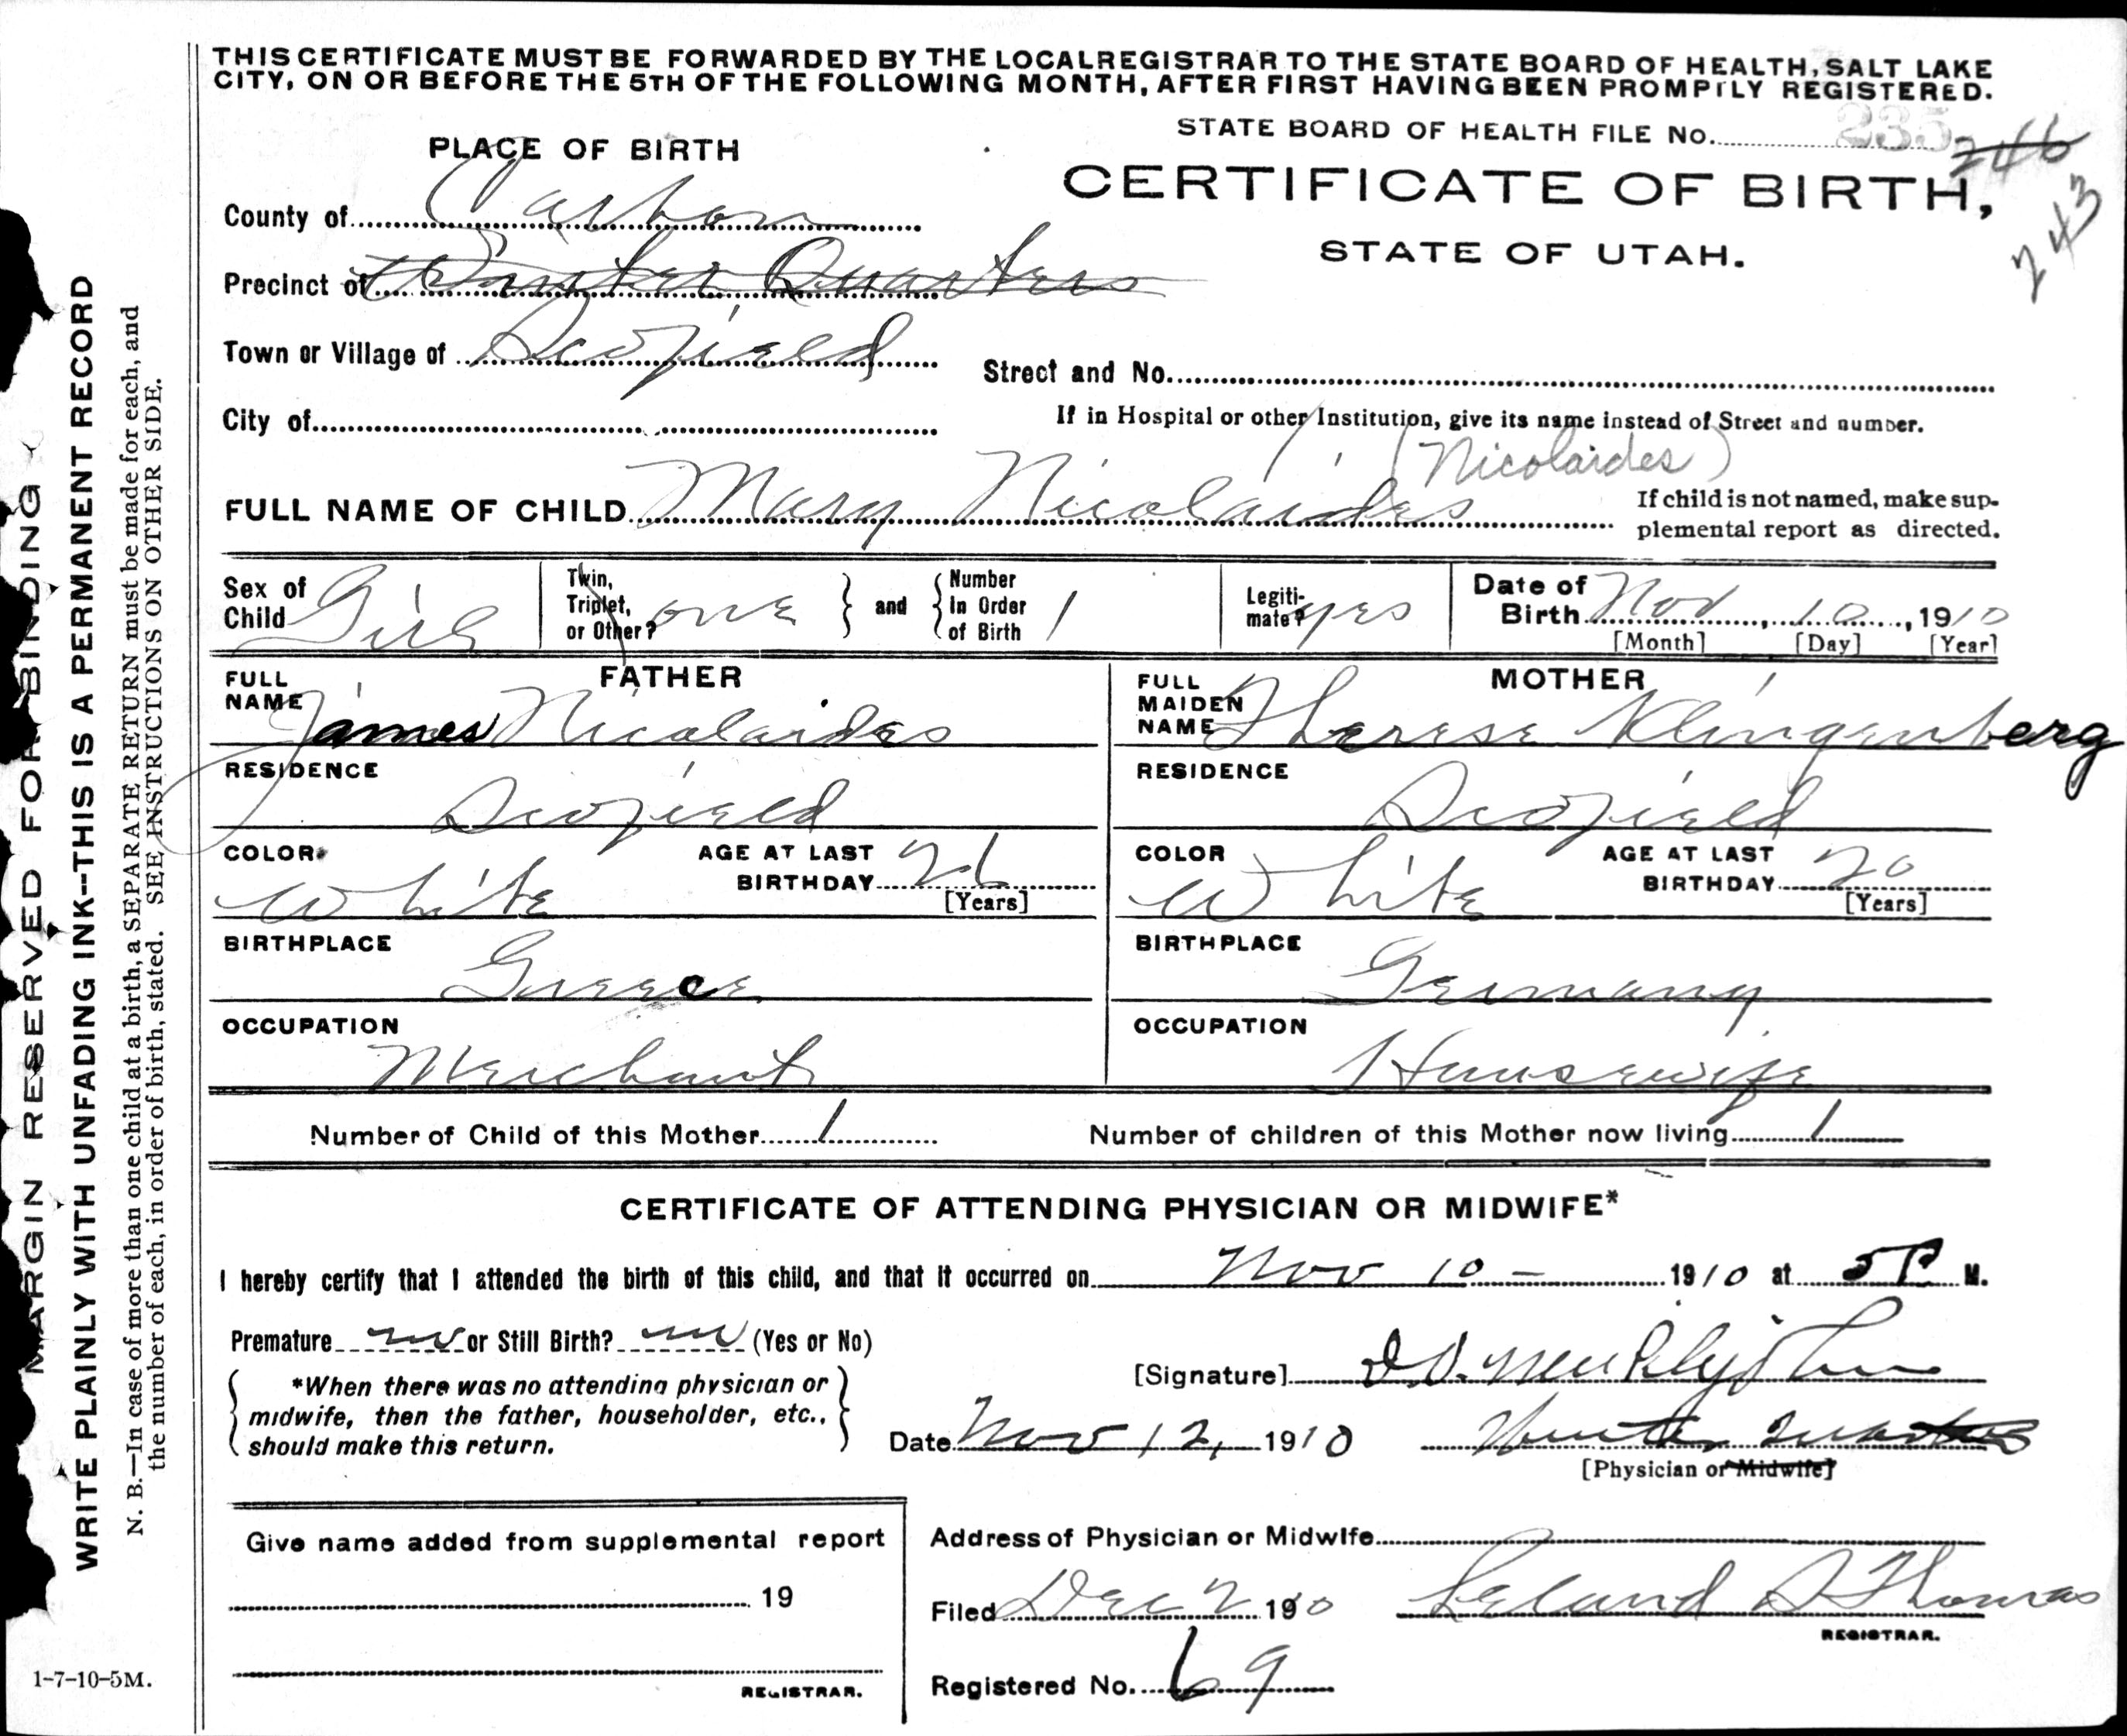 THIS CERTIFICATE MUST BE FORWARDED BY THE LOCAL REGISTRAR TO THE STATE BOARD OF HEALTH, SALT LAKE
CITY, ON OR BEFORE THE 5TH OF THE FOLLOWING MONTH, AFTER FIRST HAVING BEEN PROMPTLY REGISTERED.
STATE BOARD OF HEALTH FILE No. 235 246
243
PLACE OF BIRTH
CERTIFICATE OF BIRTH,
STATE OF UTAH.
County of Carbon
Precinct of Winter Quarters
Town or Village of Scofield
Street and No.
City of
If in Hospital or other Institution, give its name instead of Street and number.
(Nicolaides)
FULL NAME OF CHILD Mary Nicolaides
If child is not named, make sup-
plemental report as directed.
Sex of Child Girl
Twin, Triplet, or Other? one and Number In Order of Birth 1
Legiti-mate? yes
Date of Birth Nov 10, 1910
[Month] [Day] [Year]
FATHER
FULL NAME James Nicolaides
RESIDENCE
Scofield
COLOR White
AGE AT LAST BIRTHDAY 26 [Years]
BIRTHPLACE
Greece
OCCUPATION
Merchant
MOTHER
FULL MAIDEN NAME Therese Klingenberg
RESIDENCE
Scofield
COLOR White
AGE AT LAST BIRTHDAY 20 [Years]
BIRTHPLACE
Germany
OCCUPATION
Housewife
Number of Child of this Mother 1
Number of children of this Mother now living 1
CERTIFICATE OF ATTENDING PHYSICIAN OR MIDWIFE*
I hereby certify that I attended the birth of this child, and that it occurred on Nov 10 - 1910 at 5 P M.
Premature no or Still Birth? no (Yes or No)
*When there was no attending physician or
midwife, then the father, householder, etc.,
should make this return.
[Signature]
Date Nov 12, 1910
Winter Quarters
[Physician or Midwife]
Give name added from supplemental report
19
REGISTRAR.
Address of Physician or Midwife
Filed Dec 2 1910 Leland S Thomas
REGISTRAR.
Registered No. 69
MARGIN RESERVED FOR BINDING
WRITE PLAINLY WITH UNFADING INK--THIS IS A PERMANENT RECORD
N. B.—In case of more than one child at a birth, a SEPARATE RETURN must be made for each, and
the number of each, in order of birth, stated. SEE INSTRUCTIONS ON OTHER SIDE.
1-7-10-5M.